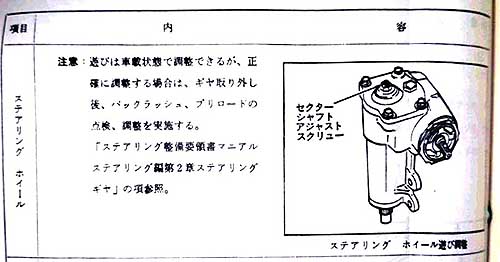 項目 内 容
ステアリング ホイール
注意：遊びは車載状態で調整できるが、正
確に調整する場合は、ギヤ取り外し
後、バックラッシュ、プリロードの
点検、調整を実施する。
「ステアリング整備要領書マニアル
ステアリング編第2章ステアリング
ギヤ」の項参照。
セクター
シャフト
アジャスト
スクリュー
ステアリング ホイール遊び調整